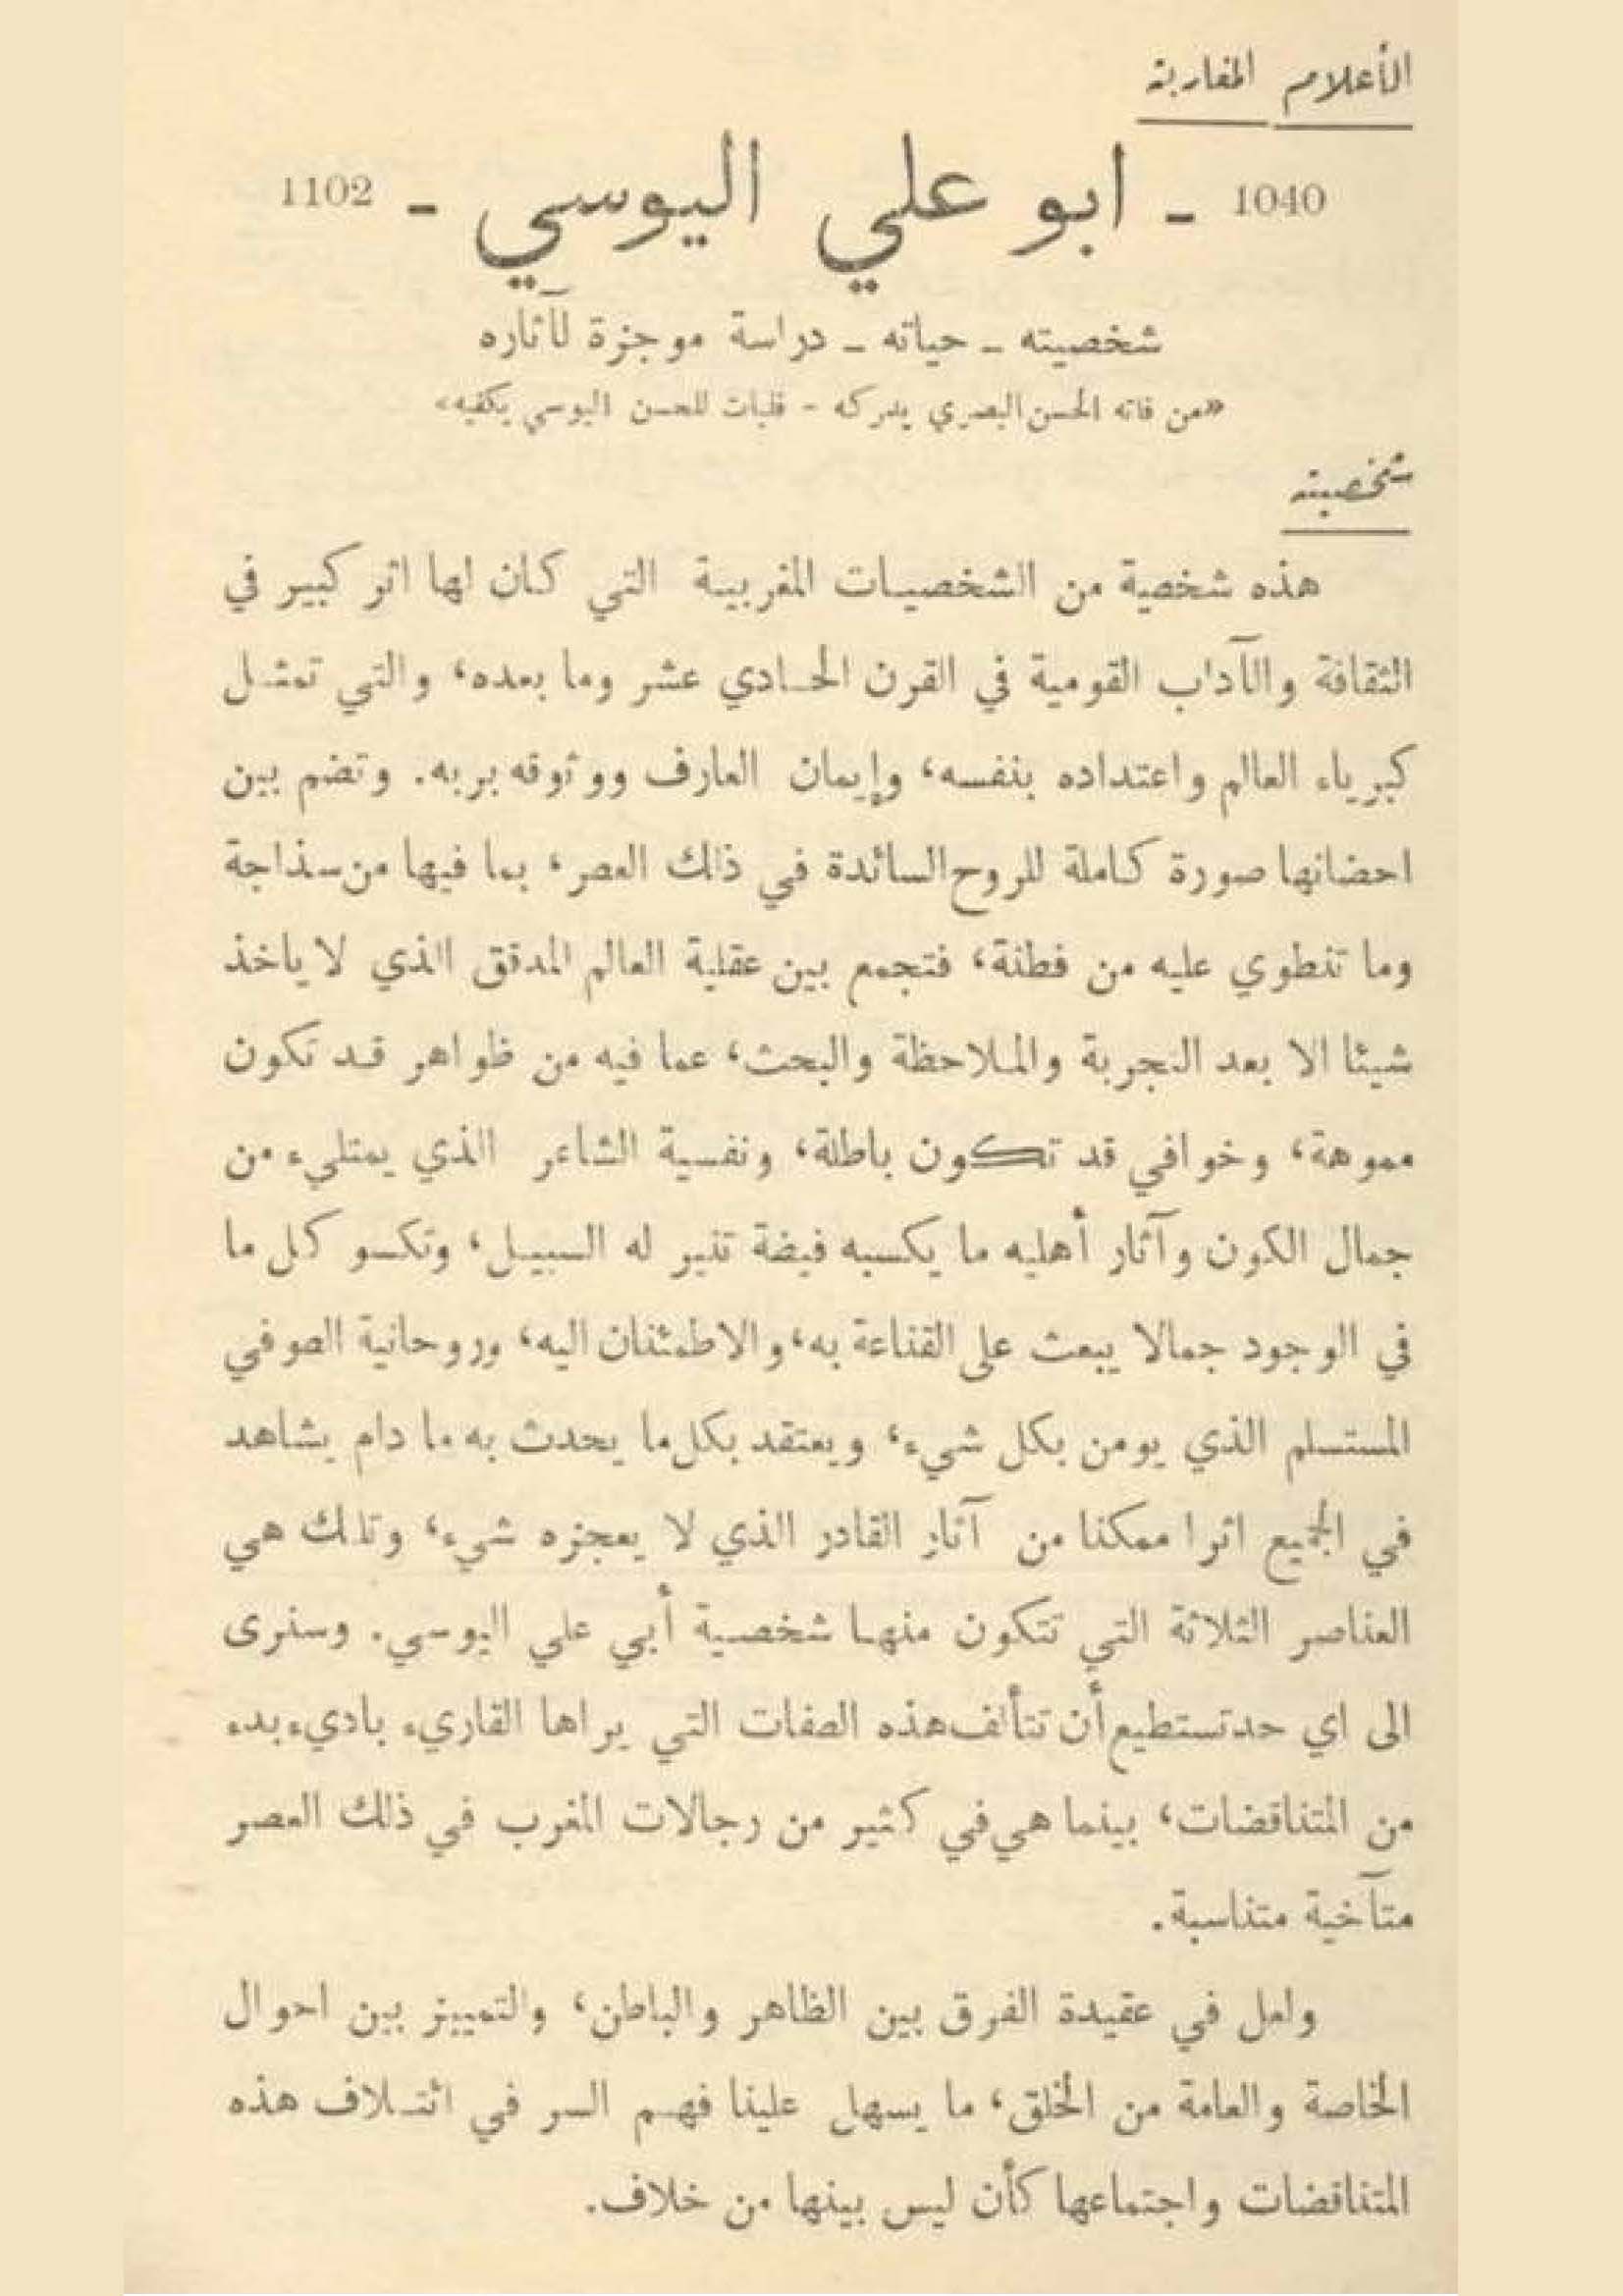 الأعلام المغاربة
1040 - ابو علي اليوسي - 1102
شخصيته - حياته - دراسة موجزة لآثاره
«من فاته الحسن البصري يدركه - فليات للحسن اليوسي يكفيه»
شخصيته
هذه شخصية من الشخصيات المغربية التي كان لها اثر كبير في
الثقافة والآداب القومية في القرن الحادي عشر وما بعده، والتي تمثل
كبرياء العالم واعتداده بنفسه، وإيمان العارف ووثوقه بربه. وتضم بين
احضانها صورة كاملة للروح السائدة في ذلك العصر، بما فيها من سذاجة
وما تنطوي عليه من فطنة، فتجمع بين عقلية العالم المدقق الذي لا ياخذ
شيئا الا بعد التجربة والملاحظة والبحث، عما فيه من ظواهر قد تكون
مموهة، وخوافي قد تكون باطلة، ونفسية الشاعر الذي يمتليء من
جمال الكون وآثار أهليه ما يكسبه فيضة تنير له السبيل، وتكسو كل ما
في الوجود جمالا يبعث على القناعة به، والاطمئنان اليه، وروحانية الصوفي
المستسلم الذي يومن بكل شيء، ويعتقد بكل ما يحدث به ما دام يشاهد
في الجميع اثرا ممكنا من آثار القادر الذي لا يعجزه شيء، وتلك هي
العناصر الثلاثة التي تتكون منها شخصية أبي علي اليوسي. وسنرى
الى اي حد تستطيع أن تتألف هذه الصفات التي يراها القاريء باديء بدء
من المتناقضات، بينما هي في كثير من رجالات المغرب في ذلك العصر
متآخية متناسبة.
ولعل في عقيدة الفرق بين الظاهر والباطن، والتمييز بين احوال
الخاصة والعامة من الخلق، ما يسهل علينا فهم السر في ائتلاف هذه
المتناقضات واجتماعها كأن ليس بينها من خلاف.